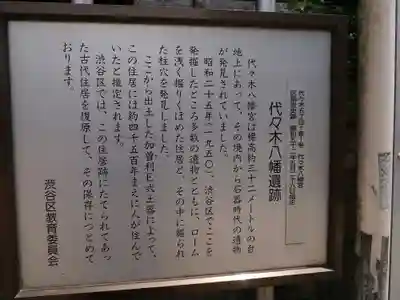 代々木八幡遺跡
代々木八幡宮は標高約三十二メートルの台
地上にあって、その境内から石器時代の遺物
が発見されていました。
昭和二十五年(一九五〇)、渋谷区でここを
発掘したところ多数の遺物とともに、ローム
を浅く掘りくぼめた住居と、その中に掘られ
た柱穴を発見しました。
ここから出土した加曽利E式土器によって、
この住居には約四千五百年まえに人が住んで
いたと推定されます。
渋谷区では、この住居跡にたてられてあっ
た古代住居を復原して、その保存につとめて
おります。
渋谷区教育委員会